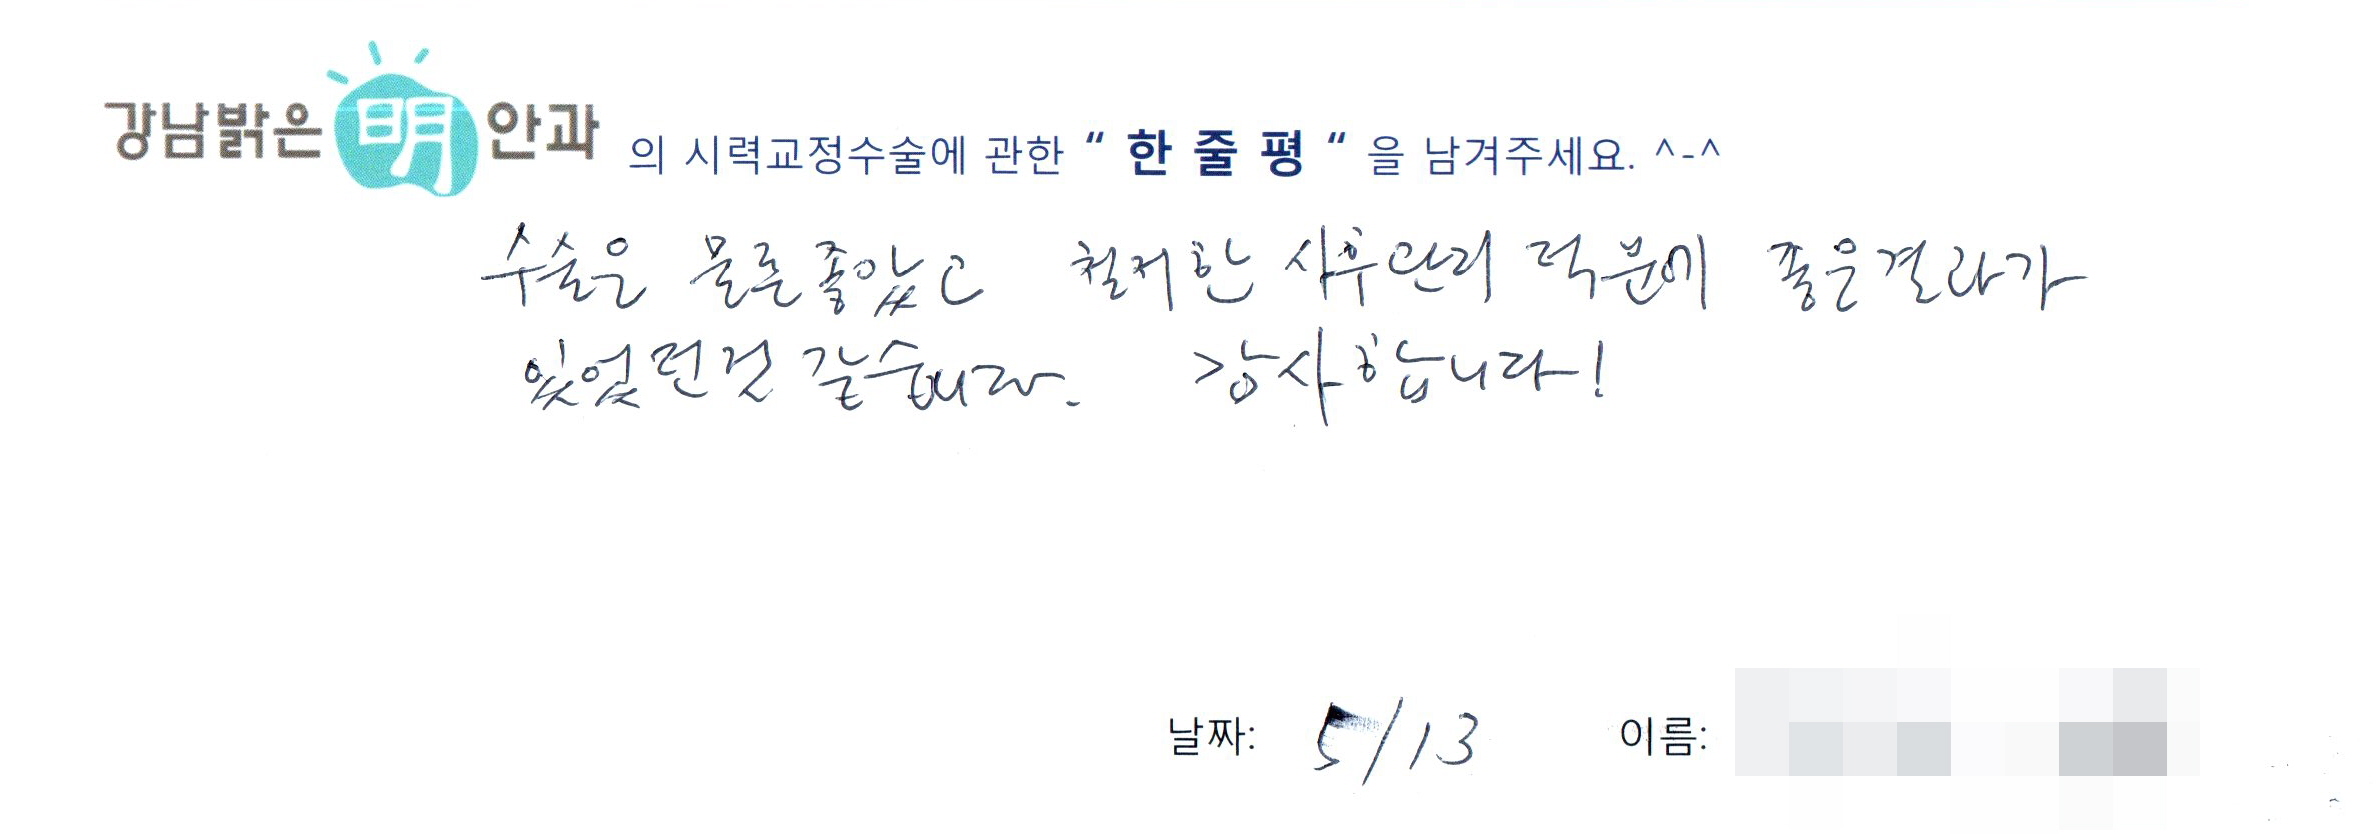 강남밝은 明 안과 의 시력교정수술에 관한 “ 한 줄 평 “ 을 남겨주세요. ^-^
수술은 물론좋았고 철저한 사후관리 덕분에 좋은결과가
있었던것 같습니다. 감사합니다!
날짜: 5/13 이름: